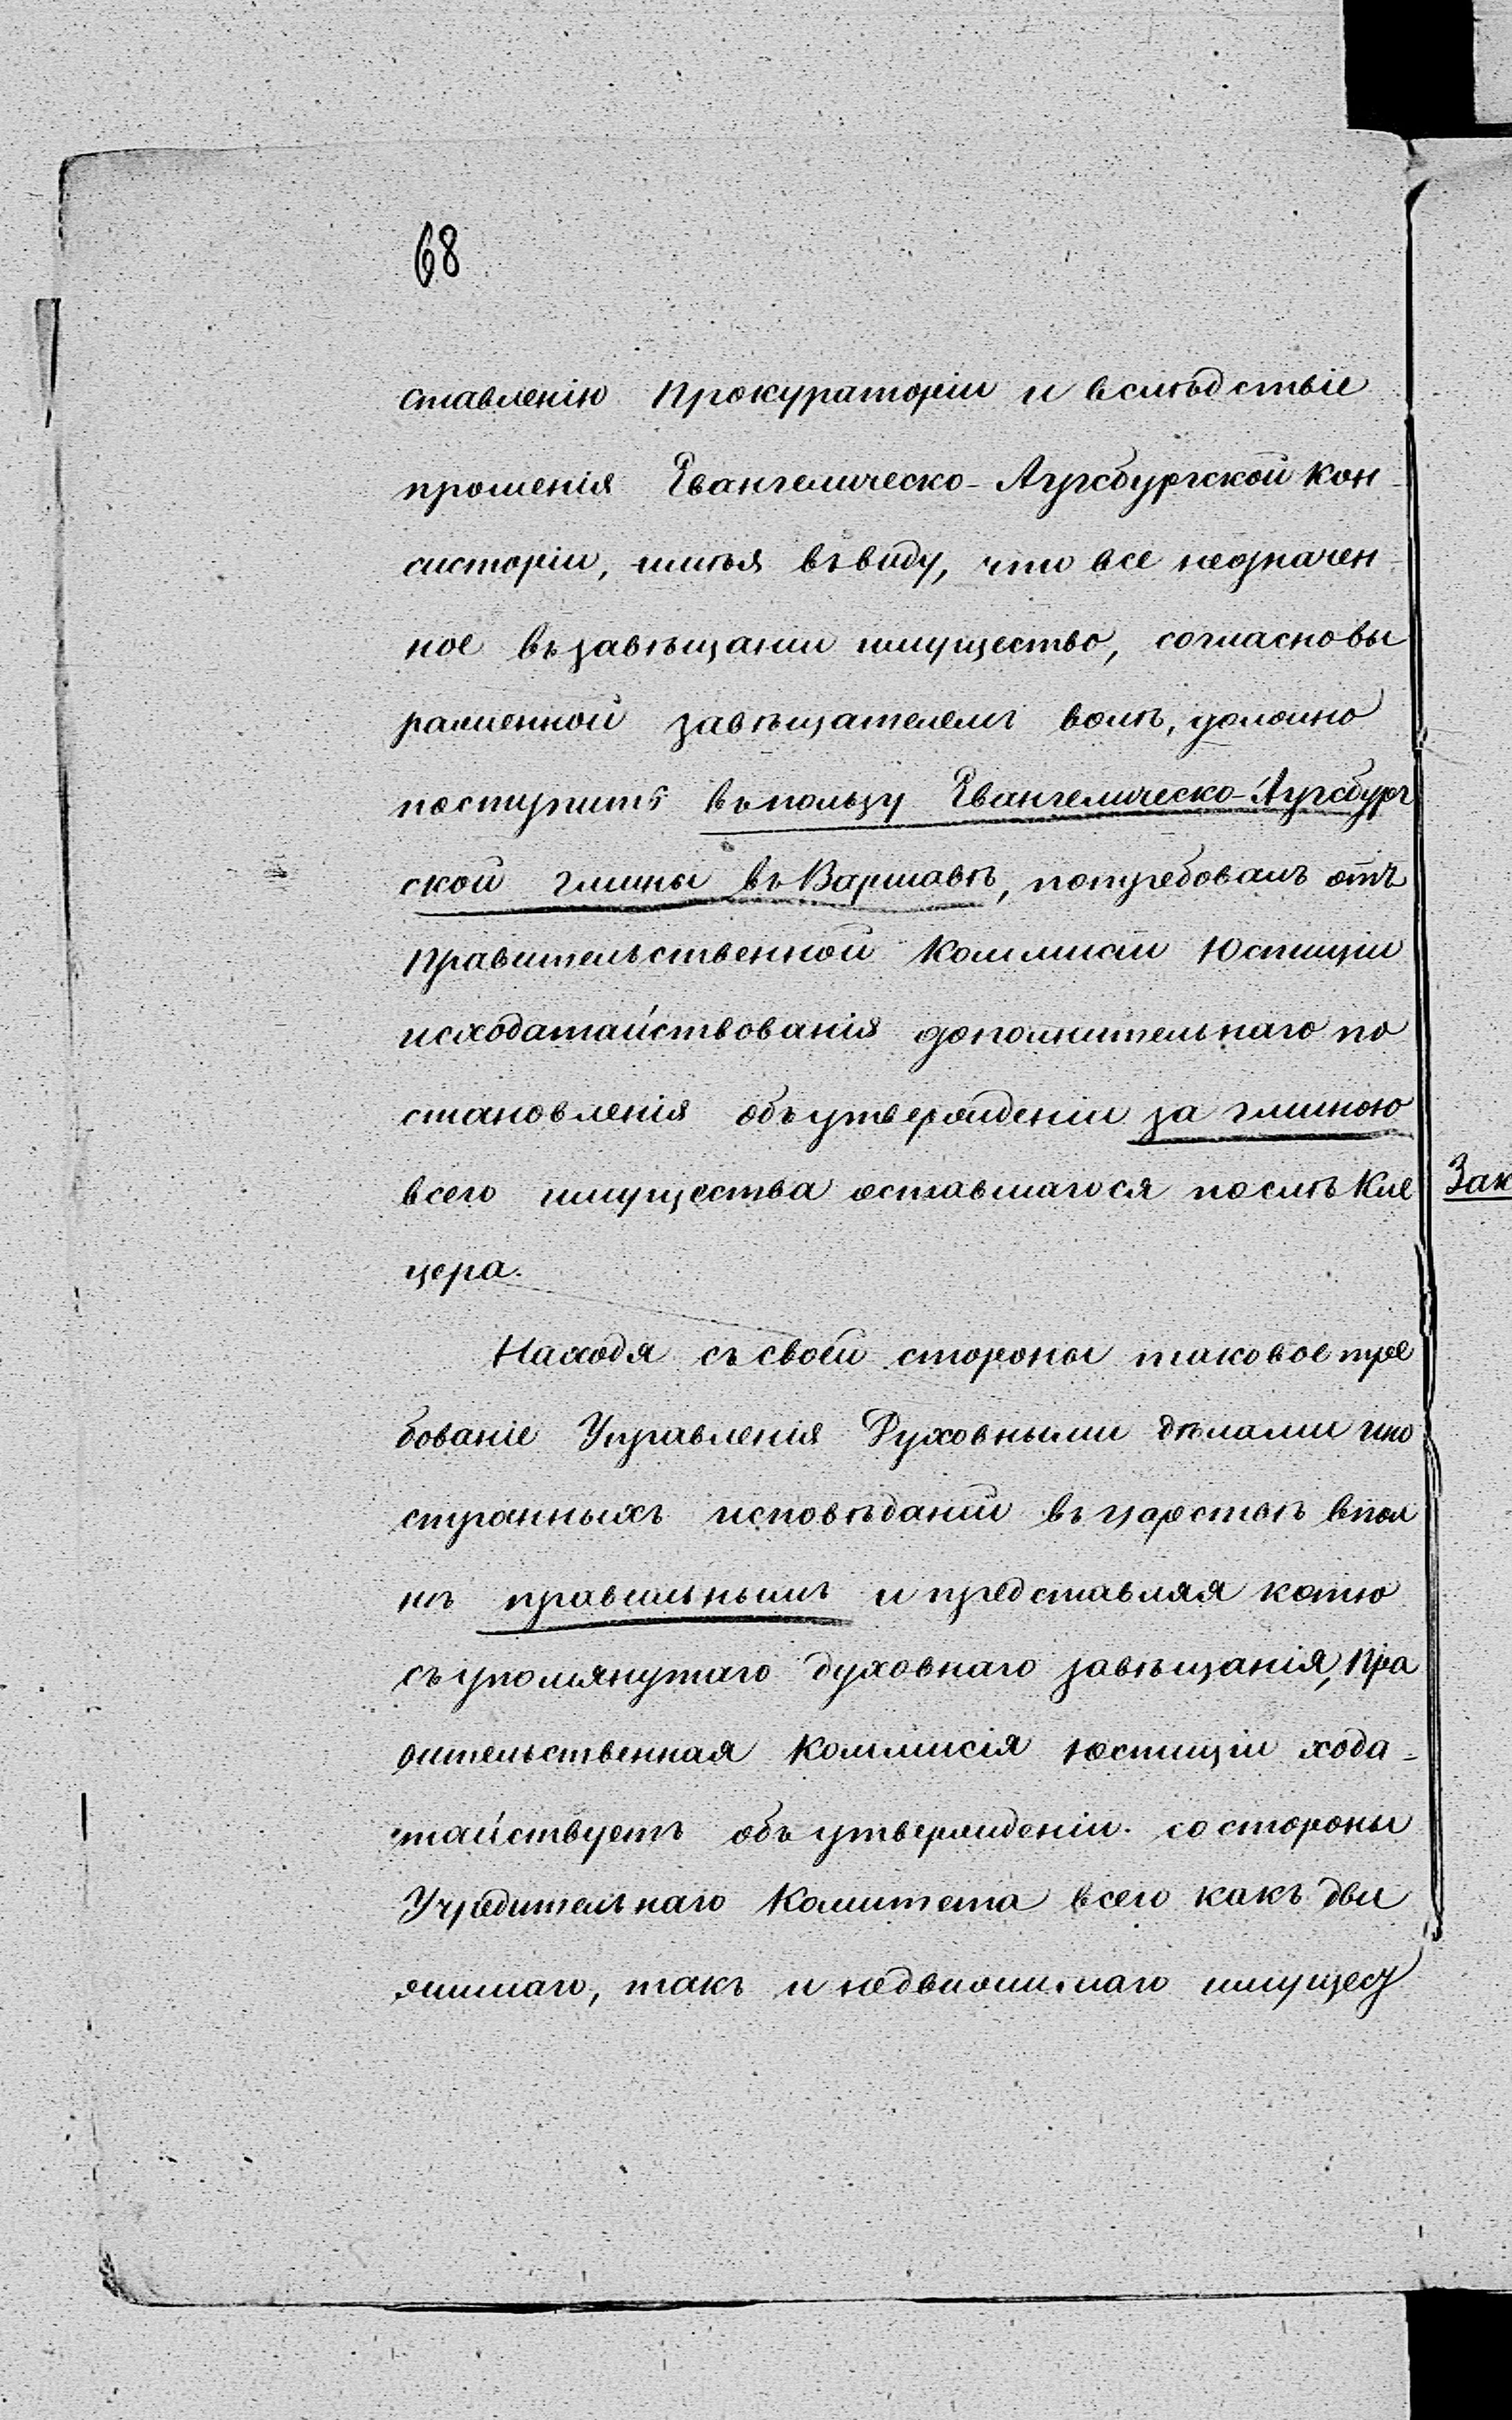 68
ставленію Прокураторіи и вслѣдствіе
прошенія Евангелическо-Аугсбургской Кон-
систоріи, имѣя въ виду, что все неозначен-
ное въ завѣщаніи имущество, согласно вы
раженной завѣщателемъ волѣ, должно
поступить въ пользу Евангелическо-Аугсбург
ской гмины въ Варшавѣ, потребовалъ отъ
Правительственной Коммисіи Юстиціи
исходатайствованія дополнительнаго по
становленія объ утвержденіи за гминою
всего имущества оставшагося послѣ Кле
цера.
Находя съ своей стороны таковое тре
бованіе Управленія Духовными дѣлами ино
странныхъ исповѣданій въ Царствѣ впол
нѣ правильнымъ и представляя копію
съ упомянутаго духовнаго завѣщанія, Пра
вительственная Коммисія Юстиціи хода-
тайствуетъ объ утвержденіи со стороны
Учредительнаго Комитета всего какъ дви
жимаго, такъ и недвижимаго имущест
Зак